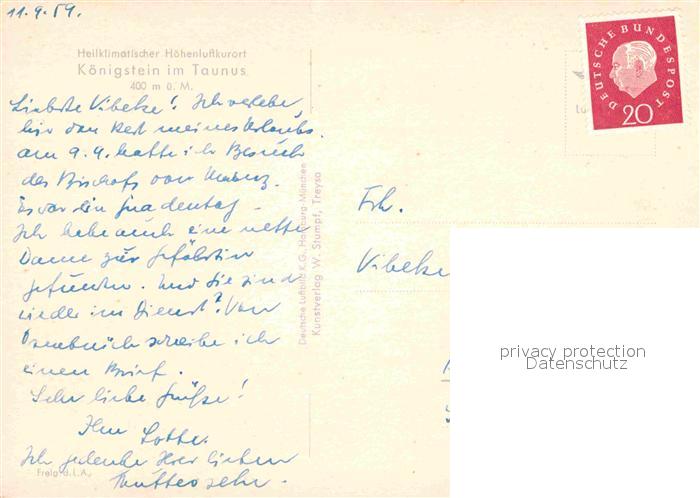 11.9.59.
Heilklimatischer Höhenluftkurort
Königstein im Taunus
400 m ü. M.
Liebste Vibeke! Ich verlebe
hier den Rest meines Urlaubs.
am 9.9. hatte ich Besuch
des Bischofs von Mainz.
Es war ein Gnadentag.
Ich habe auch eine nette
Dame zur Gefährtin
gefunden. Und Sie sind
wieder im Dienst? Von
Osnabrück schreibe ich
einen Brief.
Sehr liebe Grüße!
Ihre Lotte.
Ich gedenke Ihrer lieben
Mutter sehr.
Freig. d. L.A.
Deutsche Luftbild K.G., Hamburg-München
Kunstverlag W. Stumpf, Treysa
DEUTSCHE BUNDESPOST
20
Frl.
Vibeke
privacy protection
Datenschutz